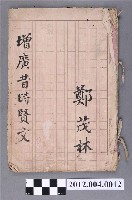 增廣昔時賢文
鄭茂林
2012.004.0012